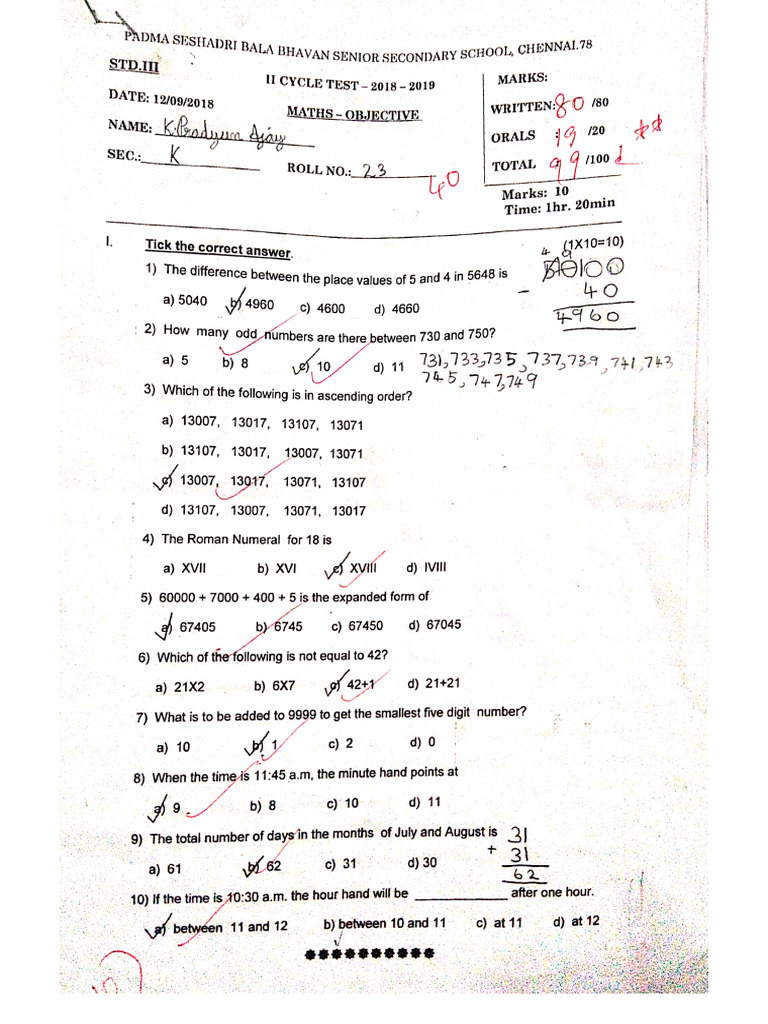 PADMA SESHADRI BALA BHAVAN SENIOR SECONDARY SCHOOL, CHENNAI.78
STD.III
II CYCLE TEST – 2018 – 2019
MARKS:
DATE: 12/09/2018
MATHS – OBJECTIVE
WRITTEN: 80 /80
NAME: K.Pradyun Ajay
ORALS : 19 /20
SEC.: K
ROLL NO.: 23
TOTAL : 99 /100
40
Marks: 10
Time: 1hr. 20min
I. Tick the correct answer. (1X10=10)
1) The difference between the place values of 5 and 4 in 5648 is
a) 5040 b) 4960 c) 4600 d) 4660
- 40
4960
2) How many odd numbers are there between 730 and 750?
a) 5 b) 8 c) 10 d) 11 731, 733, 735, 737, 739, 741, 743
745, 747, 749
3) Which of the following is in ascending order?
a) 13007, 13017, 13107, 13071
b) 13107, 13017, 13007, 13071
c) 13007, 13017, 13071, 13107
d) 13107, 13007, 13071, 13017
4) The Roman Numeral for 18 is
a) XVII b) XVI c) XVIII d) IVIII
5) 60000 + 7000 + 400 + 5 is the expanded form of
a) 67405 b) 6745 c) 67450 d) 67045
6) Which of the following is not equal to 42?
a) 21X2 b) 6X7 c) 42+1 d) 21+21
7) What is to be added to 9999 to get the smallest five digit number?
a) 10 b) 1 c) 2 d) 0
8) When the time is 11:45 a.m, the minute hand points at
a) 9 b) 8 c) 10 d) 11
9) The total number of days in the months of July and August is 31
+ 31
a) 61 b) 62 c) 31 d) 30 62
10) If the time is 10:30 a.m. the hour hand will be ______________ after one hour.
a) between 11 and 12 b) between 10 and 11 c) at 11 d) at 12